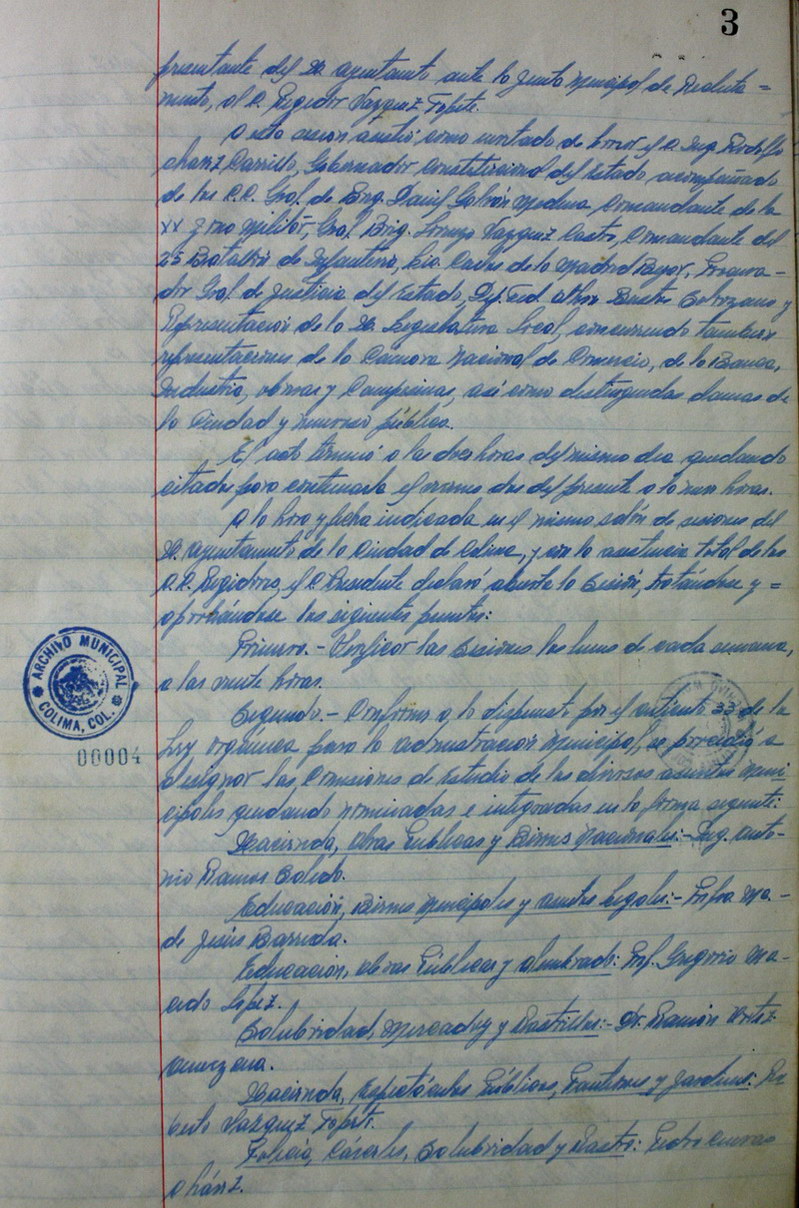 3
presentante del H. Ayuntamiento ante la Junta Municipal de Recluta =
miento, al C. Regidor Vazquez Topete.
A esta sesión asistió como invitado de honor el C. Ing. Rodolfo
Chávez Carrillo, Gobernador Constitucional del Estado acompañado
de los C.C. Gral. de Brig. David Medina Comandante de la
XX Zona Militar, Gral. Brig. Lorenzo Vazquez Castro, Comandante del
25 Batallón de Infantería, Lic. Carlos de la Madrid Bejar, Procura-
dor Gral. de Justicia del Estado, Dip. Fed. Bustos Solorzano y
Representación de la H. Legislatura Local, concurriendo tambien
representaciones de la Camara Nacional de Comercio, de la Banca,
Industria, obreros y Campesinos, así como distinguidas damas de
la Ciudad y numeroso público.
El acto terminó a las doce horas del mismo dia quedando
citados para continuarla el viernes dos del presente a las horas.
A la hora y fecha indicada en el mismo salón de sesiones del
H. Ayuntamiento de la Ciudad de Colima, y con la asistencia total de los
C.C. Regidores, el C. Presidente declaró abierta la Sesión, tratándose y =
aprobándose los siguientes puntos:
Primero.- Verificar las Sesiones los lunes de cada semana,
a las veinte horas.
Segundo.- Conforme a lo dispuesto por el artículo 33 de la
Ley orgánica para la administración Municipal, se procedió a
designar las Comisiones de Estudio de los diversos asuntos Muni
cipales quedando nominadas e integradas en la forma siguiente:
Hacienda, Obras Públicas y Bienes Nacionales:- Ing. Anto-
nio Ramos Salido.
Educación, Bienes Municipales y asuntos Legales:- Profra Ma. -
de Jesús Barreda.
Educación, obras Públicas y alumbrado: Prof. Gregorio Ma-
cedo López.
Salubridad, Mercados y Rastrillos:- Dr. Ramón Ortiz
Amezcua.
Hacienda, Espectáculos Públicos, Panteones y Jardines: Ro
berto Vazquez Topete.
Policia, Cárceles, Salubridad y Rastro: Pedro Cuevas
Chávez.
ARCHIVO MUNICIPAL
COLIMA, COL.
00004